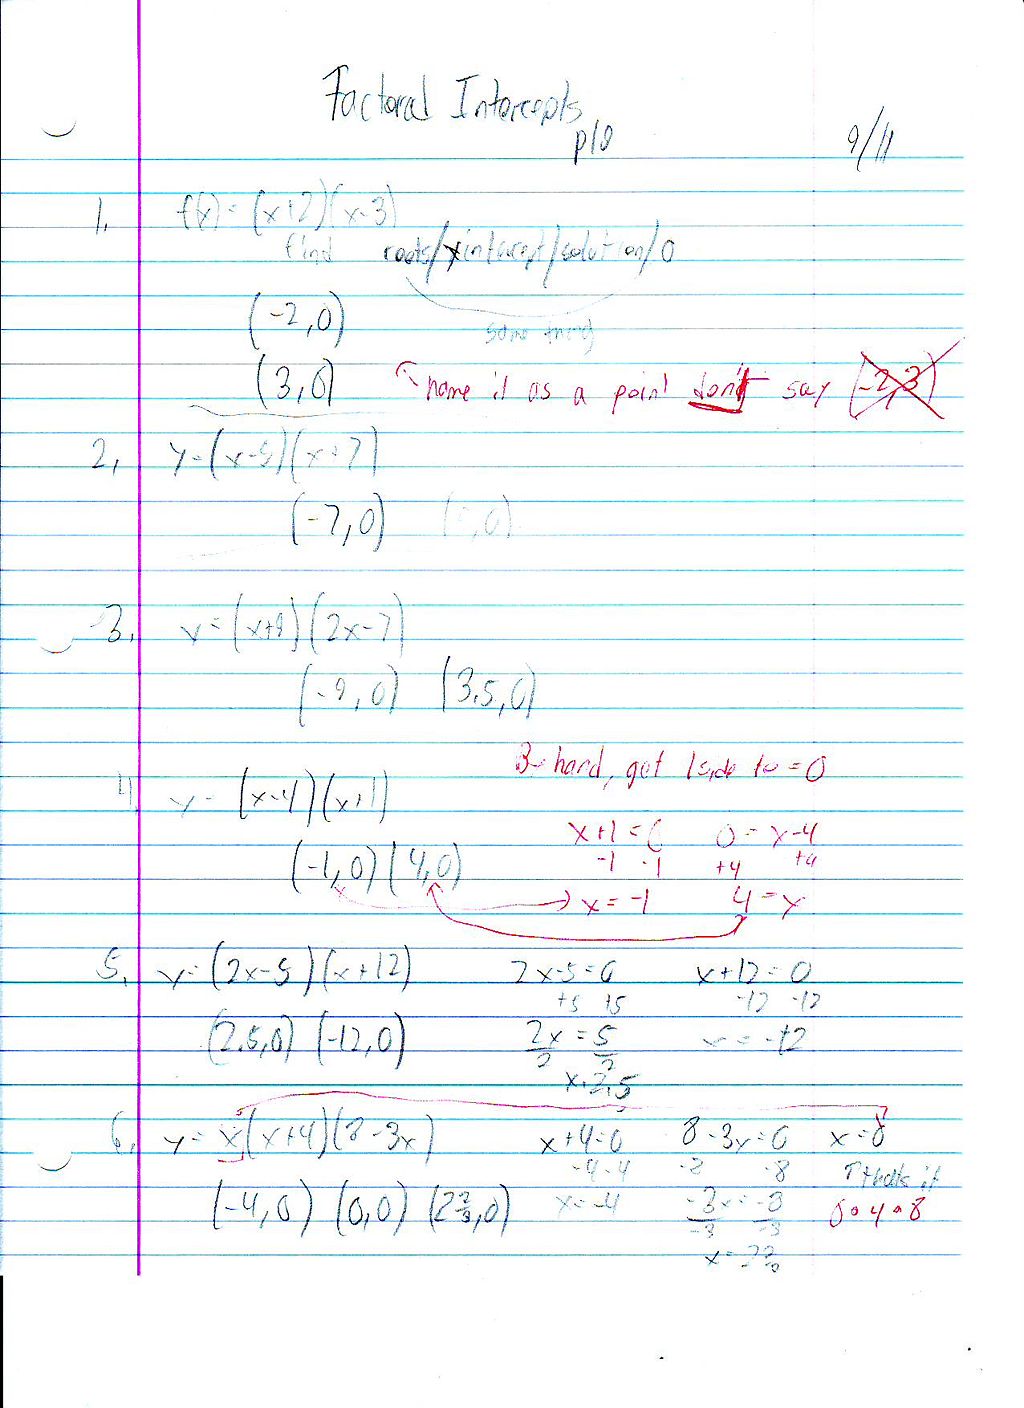 Factored Intercepts
p10
9/11
1. f(x) = (x+2)(x-3)
find roots/x intercept/solution/0
(-2,0)
same thing
(3,0) name it as a point don't say (-2,3)
2. y=(x-5)(x+7)
(-7,0) (5,0)
3. y=(x+9)(2x-7)
(-9,0) (3.5,0)
By hand, get 1 side to =0
4. y=(x-4)(x+1)
x+1=0 0=x-4
-1 -1 +4 +4
(-1,0) (4,0)
x=-1 4=x
5. y=(2x-5)(x+12) 2x-5=0 x+12=0
+5 +5 -12 -12
(2.5,0) (-12,0) 2x=5 x=-12
2 2
x=2.5
6. y=x(x+4)(8-3x) x+4=0 8-3x=0 x=0
-4 -4 -8 -8 thats it
(-4,0) (0,0) (2 2/3,0) x=-4 -3x=-8 0·4·8
-3 -3
x=2 2/3